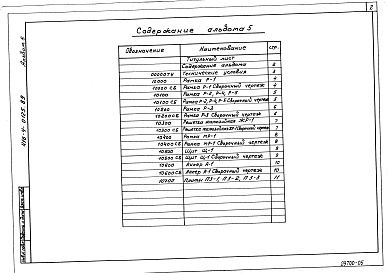 2
Содержание альбома 5
Обозначение Наименование стр.
Титульный лист
Содержание альбома 2
00000ТУ Технические условия 3
10000 Рамка Р-1 4
10000 СБ Рамка Р-1 Сборочный чертеж 4
10100 Рамка Р-2, Р-4, Р-5
10100 СБ Рамка Р-2, Р-4, Р-5 Сборочный чертеж 5
10200 Рамка Р-3
10200 СБ Рамка Р-3 Сборочный чертеж 6
10300 Решетка жалюзийная
10300 СБ Решетка жалюзийная Сборочный чертеж 7
10400 Рамка МР-1
10400 СБ Рамка МР-1 Сборочный чертеж 8
10500 Щит Щ-1
10500 СБ Щит Щ-1 Сборочный чертеж 9
10600 Анкер А-1 10
10600 СБ Анкер А-1 Сборочный чертеж 10
10700 Плиты П3-1, П3-2, П3-3 11
Альбом 5
09700-05